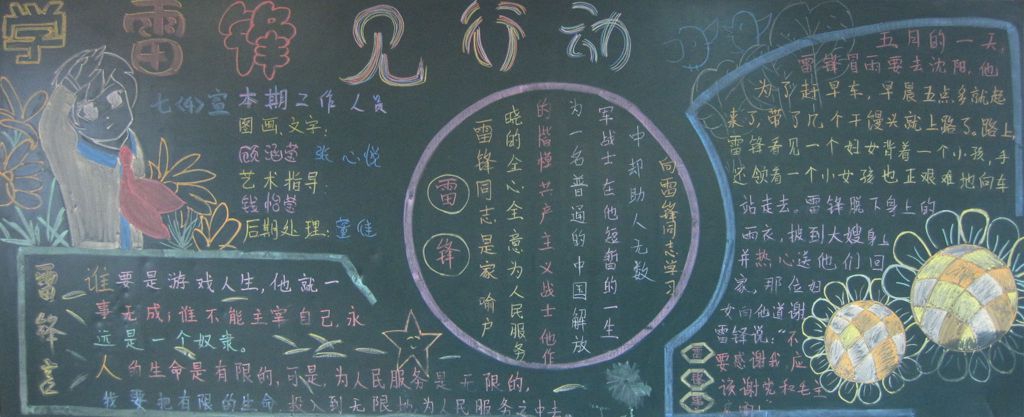 学雷锋见行动
七〈4〉宣
本期工作人员
图画,文字:
顾涵莛 张心悦
艺术指导:
钱怡莛
后期处理:童佳
雷锋言
谁要是游戏人生,他就一
事无成;谁不能主宰自己,永
远是一个奴隶。
人的生命是有限的,可是,为人民服务是无限的,
我要把有限的生命,投入到无限的为人民服务之中去。
向雷锋同志学习
中却助人无数
军战士在他短暂的一生
为一名普通的中国解放
的楷模共产主义战士他作
晓的全心全意为人民服务
雷锋同志是家喻户
雷锋
五月的一天,
雷锋冒雨要去沈阳,他
为了赶早车,早晨五点多就起
来了,带了几个干馒头就上路了。路上,
雷锋看见一个妇女背着一个小孩,手
还领着一个小女孩也正艰难地向车
站走去。雷锋脱下身上的
雨衣,披到大嫂身上
并热心送他们回
家,那位妇
女向他道谢
雷锋说:“不
要感谢我,应
该谢党和毛主
雷
锋
事